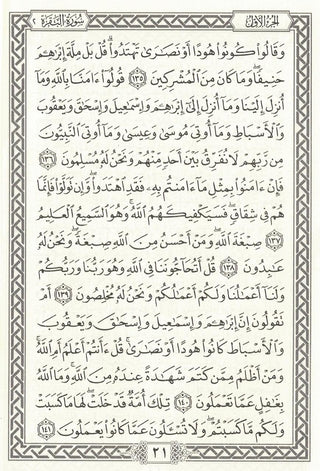 الجزء الأول
سورة البقرة ٢
وَقَالُوا۟ كُونُوا۟ هُودًا أَوْ نَصَـٰرَىٰ تَهْتَدُوا۟ ۗ قُلْ بَلْ مِلَّةَ إِبْرَٰهِـۧمَ
حَنِيفًا ۖ وَمَا كَانَ مِنَ ٱلْمُشْرِكِينَ ١٣٥ قُولُوٓا۟ ءَامَنَّا بِٱللَّهِ وَمَآ
أُنزِلَ إِلَيْنَا وَمَآ أُنزِلَ إِلَىٰٓ إِبْرَٰهِـۧمَ وَإِسْمَـٰعِيلَ وَإِسْحَـٰقَ وَيَعْقُوبَ
وَٱلْأَسْبَاطِ وَمَآ أُوتِىَ مُوسَىٰ وَعِيسَىٰ وَمَآ أُوتِىَ ٱلنَّبِيُّونَ
مِن رَّبِّهِمْ لَا نُفَرِّقُ بَيْنَ أَحَدٍ مِّنْهُمْ وَنَحْنُ لَهُۥ مُسْلِمُونَ ١٣٦
فَإِنْ ءَامَنُوا۟ بِمِثْلِ مَآ ءَامَنتُم بِهِۦ فَقَدِ ٱهْتَدَوا۟ ۖ وَّإِن تَوَلَّوْا۟ فَإِنَّمَا
هُمْ فِى شِقَاقٍ ۖ فَسَيَكْفِيكَهُمُ ٱللَّهُ ۚ وَهُوَ ٱلسَّمِيعُ ٱلْعَلِيمُ
١٣٧ صِبْغَةَ ٱللَّهِ ۖ وَمَنْ أَحْسَنُ مِنَ ٱللَّهِ صِبْغَةً ۖ وَنَحْنُ لَهُۥ
عَـٰبِدُونَ ١٣٨ قُلْ أَتُحَآجُّونَنَا فِى ٱللَّهِ وَهُوَ رَبُّنَا وَرَبُّكُمْ
وَلَنَآ أَعْمَـٰلُنَا وَلَكُمْ أَعْمَـٰلُكُمْ وَنَحْنُ لَهُۥ مُخْلِصُونَ ١٣٩ أَمْ
تَقُولُونَ إِنَّ إِبْرَٰهِـۧمَ وَإِسْمَـٰعِيلَ وَإِسْحَـٰقَ وَيَعْقُوبَ
وَٱلْأَسْبَاطَ كَانُوا۟ هُودًا أَوْ نَصَـٰرَىٰ ۗ قُلْ ءَأَنتُمْ أَعْلَمُ أَمِ ٱللَّهُ ۗ
وَمَنْ أَظْلَمُ مِمَّن كَتَمَ شَهَـٰدَةً عِندَهُۥ مِنَ ٱللَّهِ ۗ وَمَا ٱللَّهُ
بِغَـٰفِلٍ عَمَّا تَعْمَلُونَ ١٤٠ تِلْكَ أُمَّةٌ قَدْ خَلَتْ ۖ لَهَا مَا كَسَبَتْ
وَلَكُم مَّا كَسَبْتُمْ ۖ وَلَا تُسْـَٔلُونَ عَمَّا كَانُوا۟ يَعْمَلُونَ ١٤١
٢١